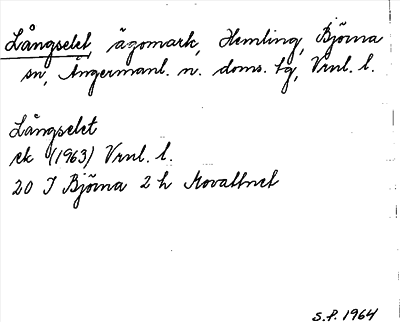 Långselet, ägomark, Hemling, Björna
sn, Ångermanl. n. doms. tg, Vrnl. l.
Långselet
ek (1963) Vrnl. l.
20 I Björna 2 h Movattnet
S.P. 1964